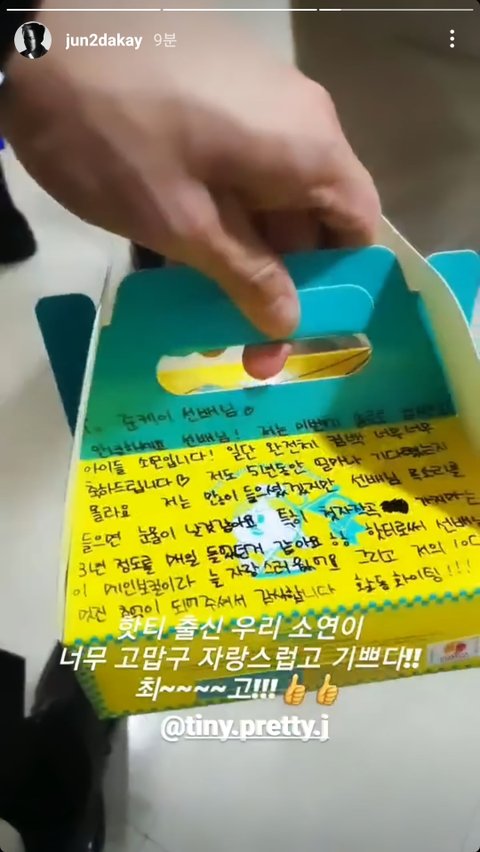 jun2dakay 9분
준케이 선배님♡
안녕하세요 선배님! 저는 이번에 솔로로
아이들 소연입니다! 일단 완전체 컴백 너무너무
축하드립니다♡ 저도 5년동안 얼마나 기다렸는지
몰라요 저는 많이 들으셨겠지만 선배님 목소리를
들으면 눈물이 날것같아요 특히
3년 정도를 매일 들었던거 같아요 항상 핫티로써 선배님
이 메인보컬이라 늘 자랑스러웠어요 그리고 저의 10대
멋진 청춘이 되어주셔서 감사합니다 활동 화이팅!!!
핫티 출신 우리 소연이
너무 고맙구 자랑스럽고 기쁘다!!
최~~~~고!!!👍👍
@tiny.pretty.j